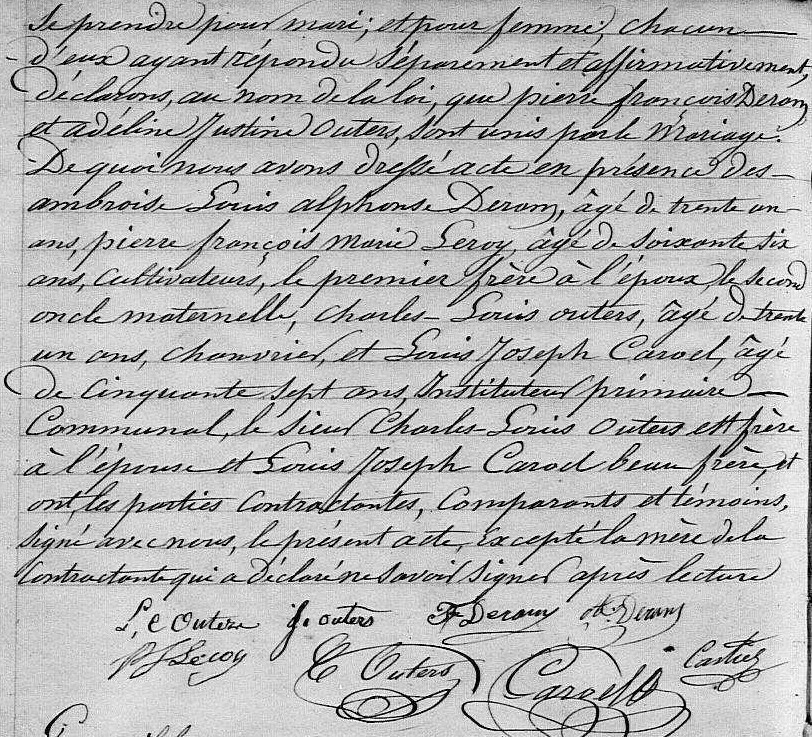 Se prendre pour mari; et pour femme, chacun
d'eux ayant répondu séparement et affirmativement,
Déclarons, au nom de la loi, que pierre françois Deram
et adéline Justine Outers, sont unis par le mariage.
De quoi nous avons dressé acte en présence des
ambroise Louis alphonse Deram, âgé de trente un
ans, pierre françois Marie Leroy, âgé de soixante six
ans, cultivateurs, le premier frère à l'époux, le second
oncle maternelle, charles Louis outers, âgé de trente
un ans, chanvrier, et Louis Joseph Caroel, âgé
de cinquante sept ans, Instituteur primaire
Communal, le sieur Charles Louis Outers est frère
à l'épouse et Louis Joseph Caroel beau frère, et
ont, les parties contractantes, comparants et témoins,
signé avec nous, le présent acte, Excepté la mère de la
contractante qui a déclaré ne savoir signer après lecture
L, C Outers J. outers Deram Deram
Leroy C Outers Caroel